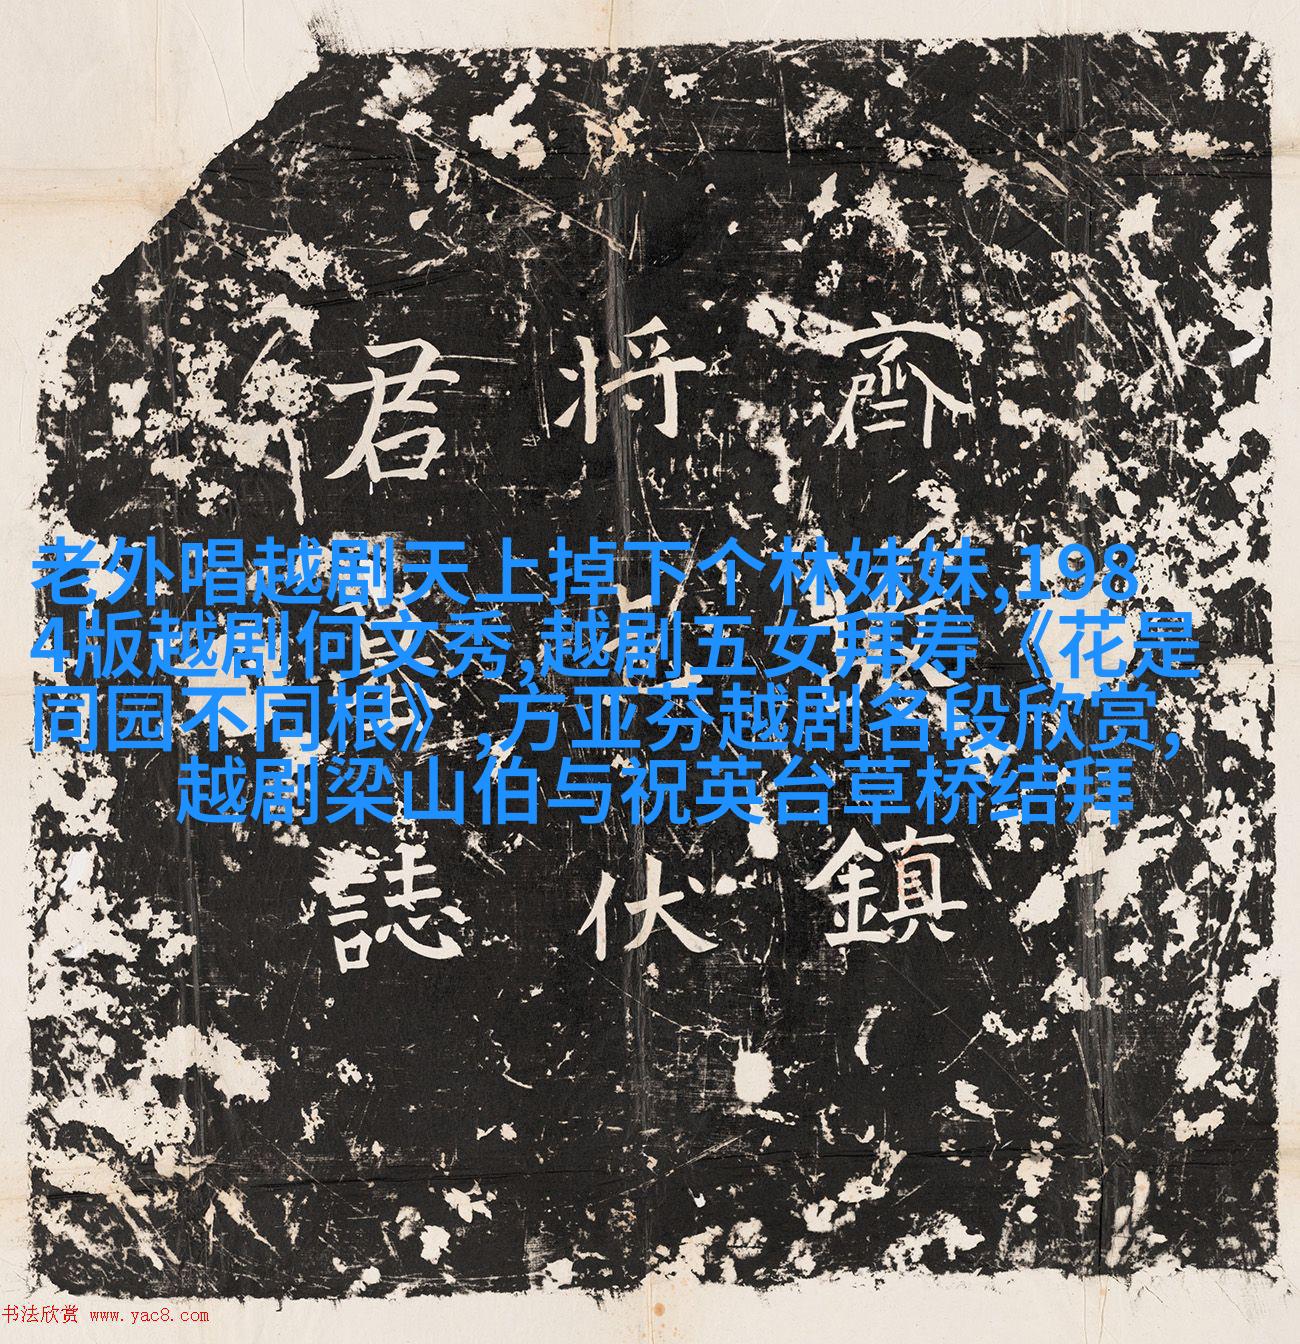 齊鎮
将伏
君誌
老外唱越剧天上掉下个林妹妹,198
4版越剧何文秀,越剧五女拜寿《花是
同园不同根》,方亚芬越剧名段欣赏,
越剧梁山伯与祝英台草桥结拜
书法欣赏 www.yac8.com